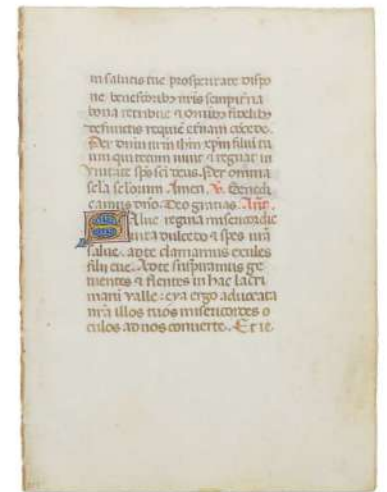 in salutis tue prosperitate dispo
ne. benefcãribꝫ nr̃is sempiterna
bona retribue ⁊ omnibꝫ fidelibꝫ
defunctis requiẽ etnam cõcede.
Per dnm nrm ihm xpm filiũ tu
um qui tecum uiuit ⁊ regnat in
vnitate sps sci deus. Per omnia
sela selorum Amen. V. Benedi
camus dño. Deo gratias. Añ.
Salue regina misericordie
uita dulcedo ⁊ spes nr̃a
salue. ad te clamamus exules
filii eue. Ad te suspiramus ge
mentes ⁊ flentes in hac lacri
marũ valle: eya ergo aduocata
nr̃a illos tuos misericordes o
culos ad nos conuerte. Et ie